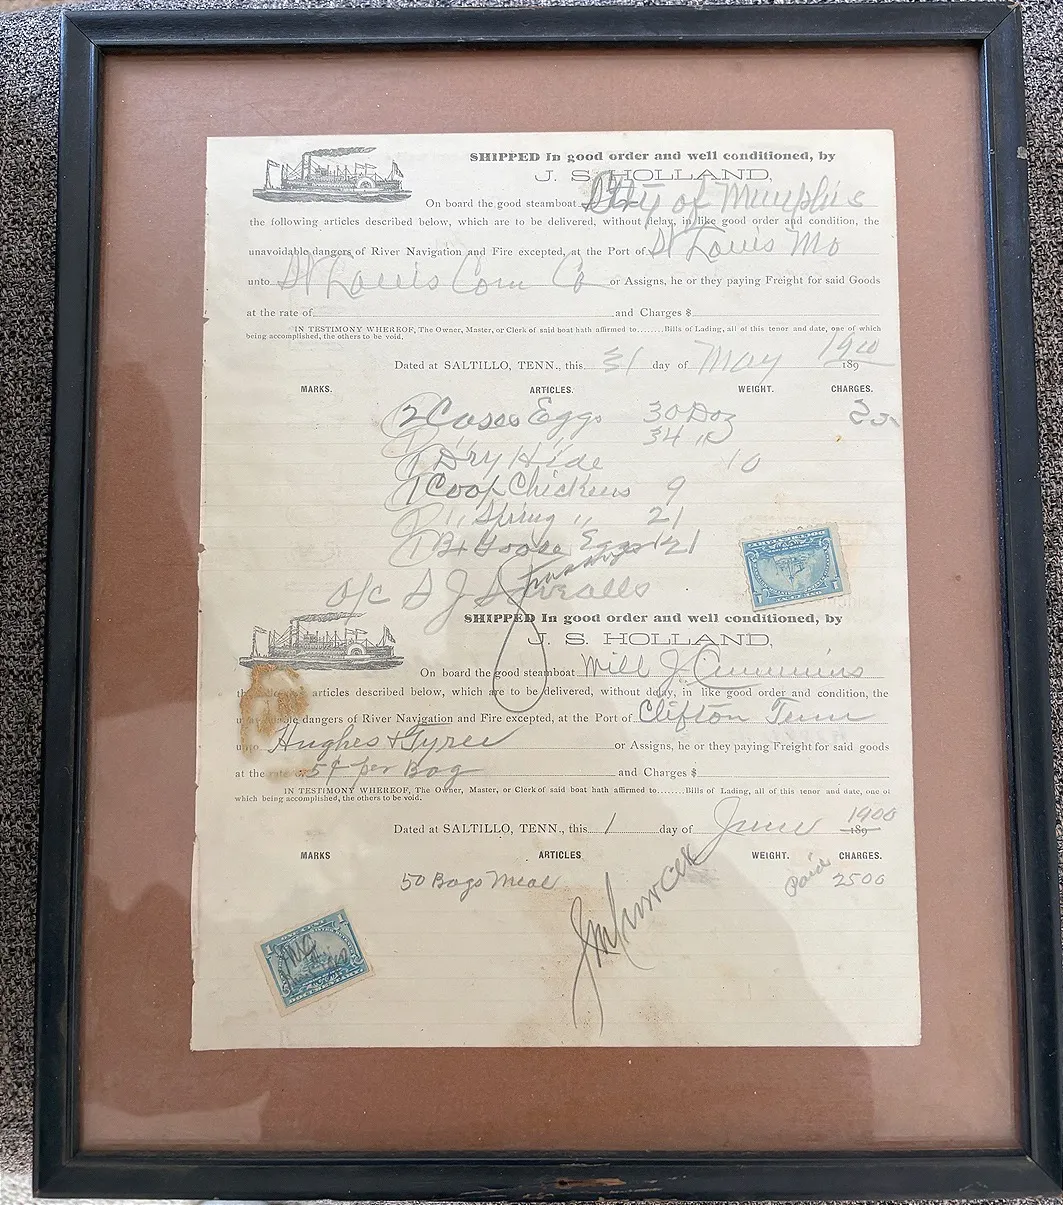 SHIPPED In good order and well conditioned, by
J. S. HOLLAND,
On board the good steamboat City of Memphis
the following articles described below, which are to be delivered, without delay, in like good order and condition, the
unavoidable dangers of River Navigation and Fire excepted, at the Port of St Louis Mo
unto St Louis Com Co or Assigns, he or they paying Freight for said Goods
at the rate of and Charges $
IN TESTIMONY WHEREOF, The Owner, Master, or Clerk of said boat hath affirmed to........Bills of Lading, all of this tenor and date, one of which
being accomplished, the others to be void.
Dated at SALTILLO, TENN., this 31 day of May 1900 189
MARKS. ARTICLES. WEIGHT. CHARGES.
2 Cases Eggs 30 Doz 25
34 "
1 Dry Hide 10
1 Coop Chickens 9
1 " Spring " 21
1 Bx Goose Eggs 21
a/c S J
SHIPPED In good order and well conditioned, by
J. S. HOLLAND,
On board the good steamboat Will J Cummins
the following articles described below, which are to be delivered, without delay, in like good order and condition, the
unavoidable dangers of River Navigation and Fire excepted, at the Port of Clifton Tenn
unto Hughes & Tyree or Assigns, he or they paying Freight for said goods
at the rate of 5¢ per Bag and Charges $
IN TESTIMONY WHEREOF, The Owner, Master, or Clerk of said boat hath affirmed to........Bills of Lading, all of this tenor and date, one of
which being accomplished, the others to be void.
Dated at SALTILLO, TENN., this 1 day of June 1900 189
MARKS ARTICLES WEIGHT. CHARGES.
50 Bags Meal Paid 2500
1 ONE CENT 1
DOCUMENTARY